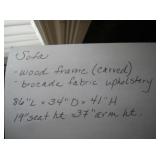 Sofa
- wood frame (carved)
- brocade fabric upholstery
86"L = 34"D = 41"H
19" seat ht. = 37" arm ht.